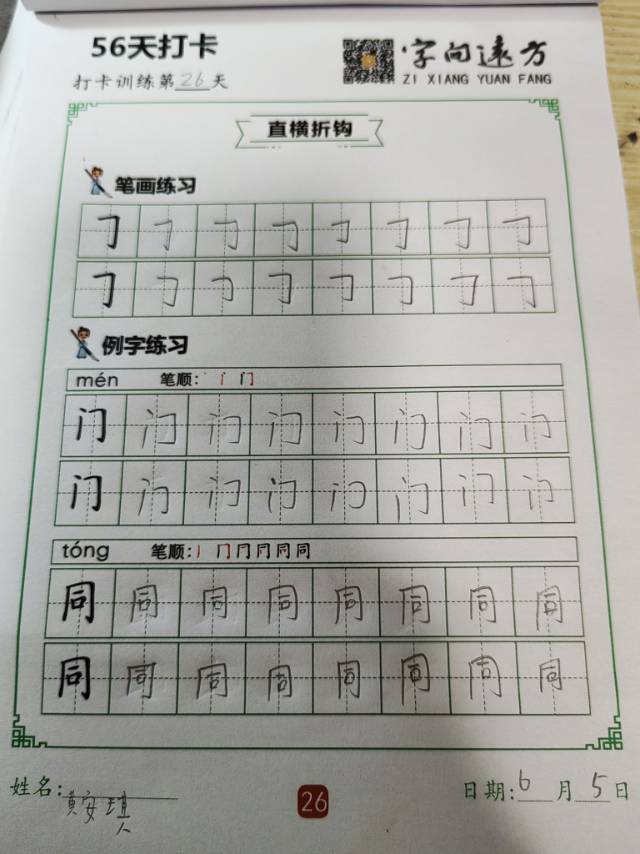 56天打卡
字向远方
ZI XIANG YUAN FANG
打卡训练第26天
直横折钩
笔画练习
𠃌 𠃌 𠃌 𠃌 𠃌 𠃌 𠃌 𠃌
𠃌 𠃌 𠃌 𠃌 𠃌 𠃌 𠃌 𠃌
例字练习
mén 笔顺: 丶 门
门 门 门 门 门 门 门 门
门 门 门 门 门 门 门 门
tóng 笔顺: 丨 冂 同
同 同 同 同 同 同 同 同
同 同 同 同 同 同 同 同
姓名: 黄安琪
26
日期: 6月5日